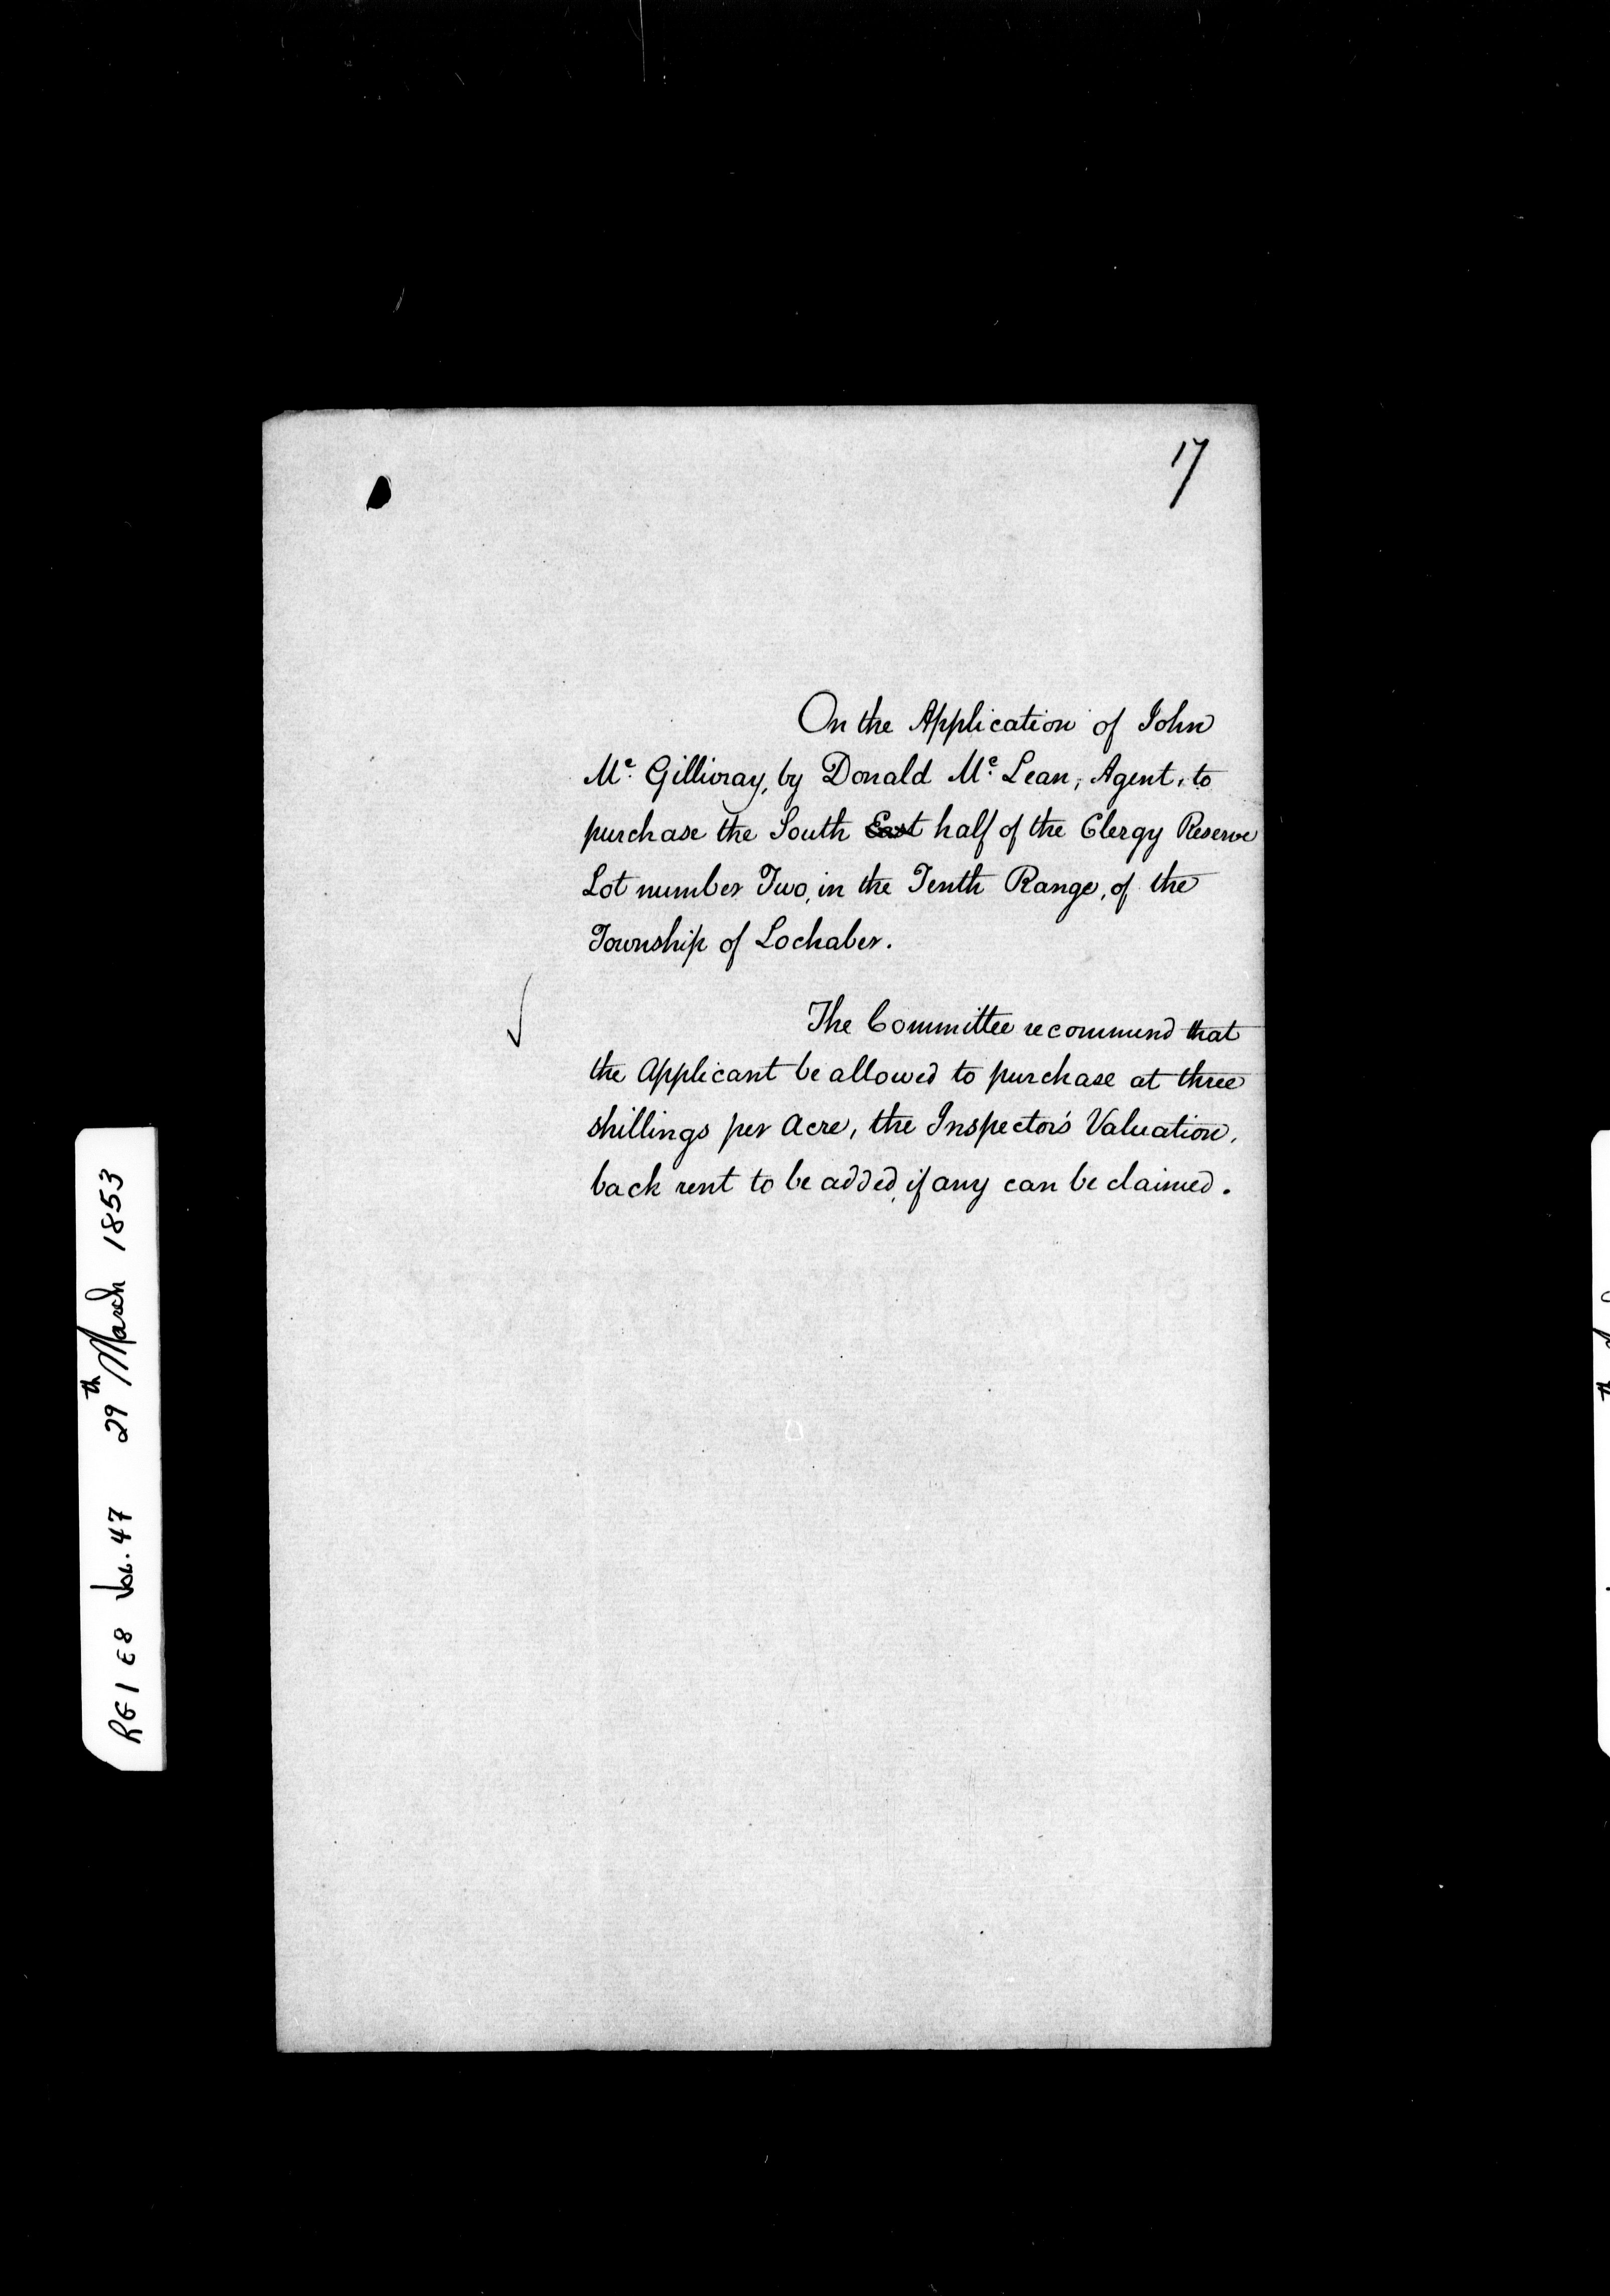 17
On the Application of John
Mc. Gillivray, by Donald Mc. Lean, Agent, to
purchase the South East half of the Clergy Reserve
Lot number Two, in the Tenth Range, of the
Township of Lochaber.
The Committee recommend that
the Applicant be allowed to purchase at three
shillings per Acre, the Inspector's Valuation,
back rent to be added, if any can be claimed.
RG1 E8 Vol. 47 29th March 1853